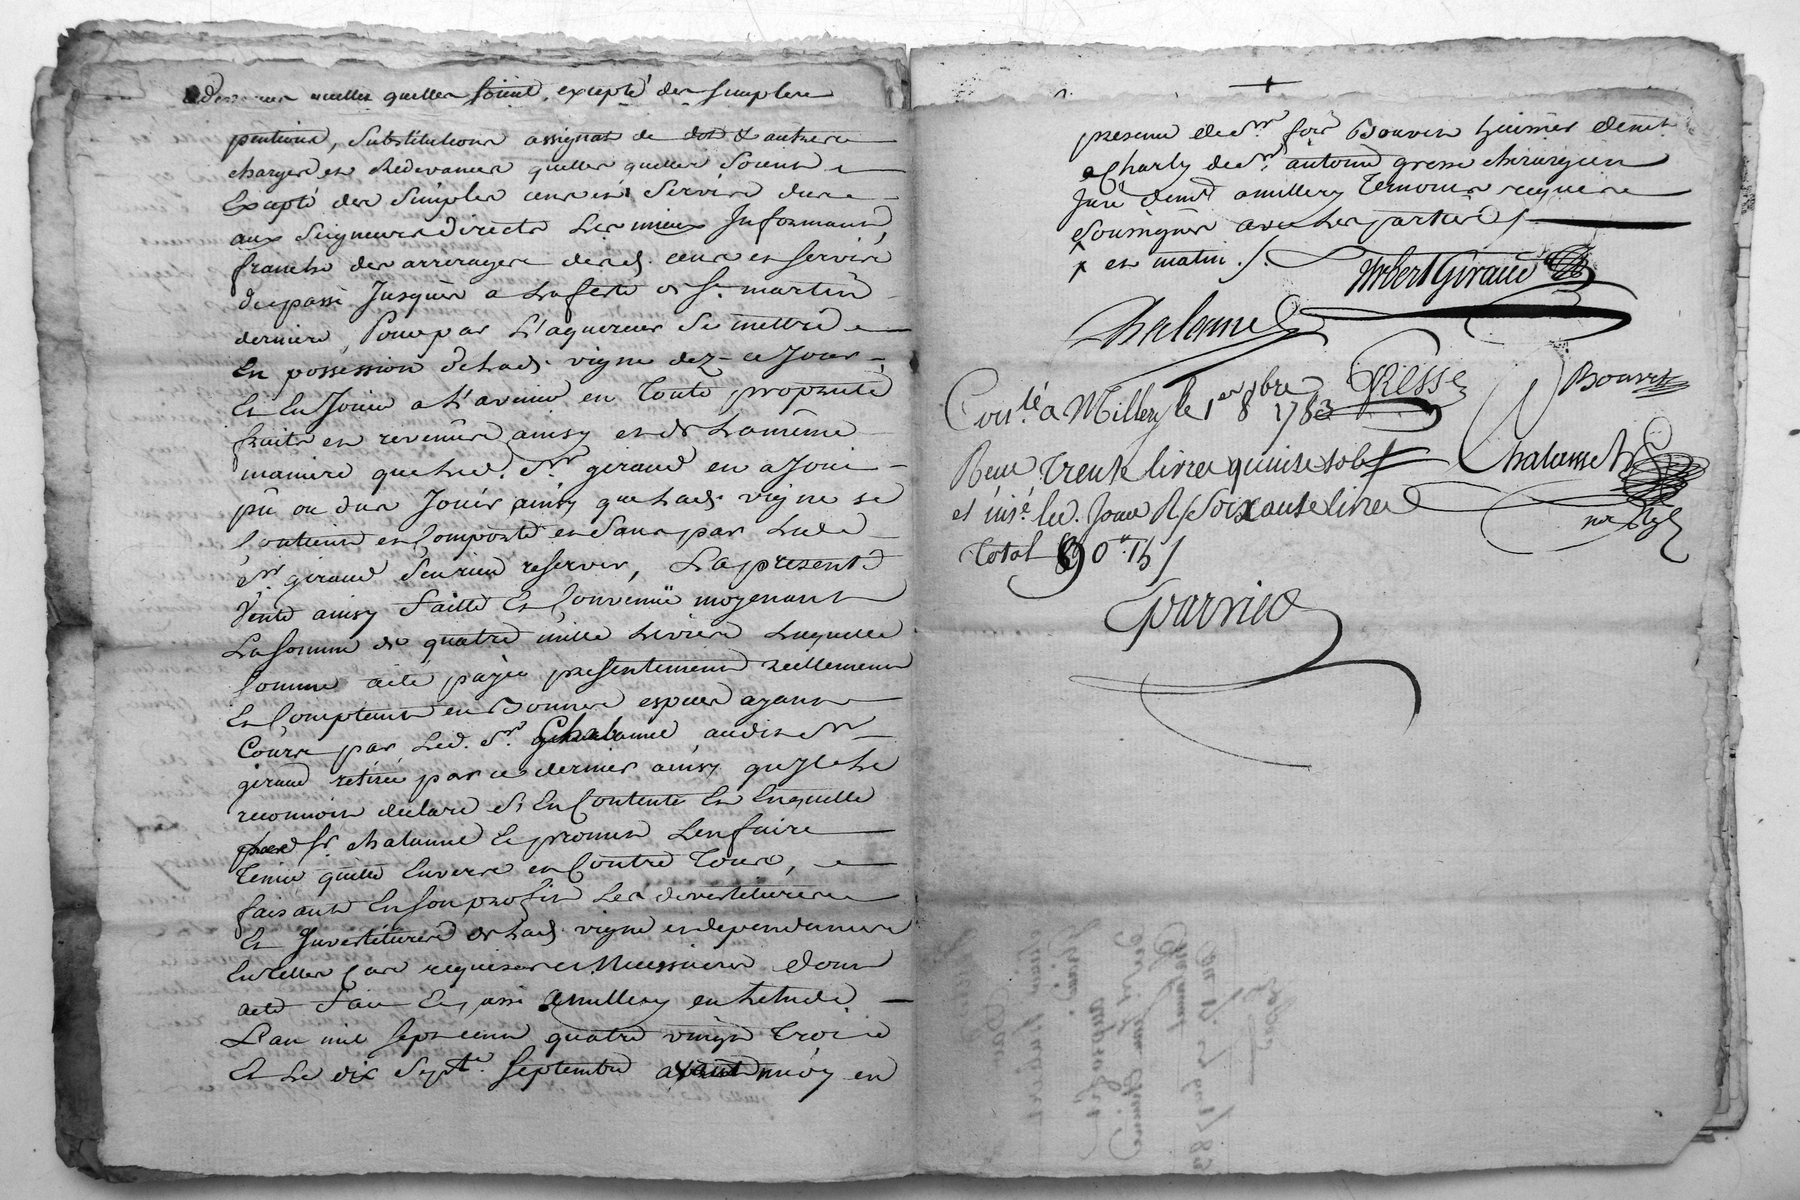 quelles quelles soient, excepté des simples
pentions, Substitutions assignat de dot & autres
charges et Redevances quelles quelles Soient
Excepté des Simples cens et Servis dues
aux Seigneurs directs Les mieux Informans,
franche des arrerages desd. cens et servis
du passé Jusques a La feste de St. martin
derniere, Pour par L'aquereur Se mettre
En possession de Lad. vigne dez-ce Jour,
Et En Jouir a L'avenir en Toute proprieté
fruits et revenus ainsy et de La même
maniere que Led. Sr. giraud en a Joui
pû ou dus Jouir ainsy que Lad. vigne se
Contient et Comporte et Sans par Led.
Sr. giraud S'en rien reserver, La presente
Vente ainsy faitte Et Convenüe moyenant
La somme de quatre mille Livres Laquelle
Somme a été payée presentement réellement
Et Comptant en Bonnes especes ayant
Cours par Led. Sr. Chalanne audit Sr.
giraud retirée par ce dernier ainsy qu'il Le
reconnoit declare S'En Contente Et En quitte
Sr. chalanne Et promet L'en faire
Tenir quitte Envers et Contre Tous,
faisant En son profit Les devestitures
Et Investitures de Lad. vigne et dependances
En Telles Cas requises et Necessaires dont
acte Fait Et passé a millery en L'etude
L'an mil sept cent quatre vingt Trois
Et Le dix Sept.e Septembre avant midy en
presence de Sr. fois Bouvet huissier demt.
a Charly de Sr. antoine gresse chirurgien
Juré demt. a millery Temoins requis
Soussignés avec Les parties /
x et matin ./.
Imbert Giraud
Chalanne
GRESSE
Bouvet
Contlé a Millery le 1er 8bre 1783
Reçu Trente livres quinse sols
et insé. led. Jour R/ Soixante livres
Total 90# 15 s
Chalasset
nre Ryl